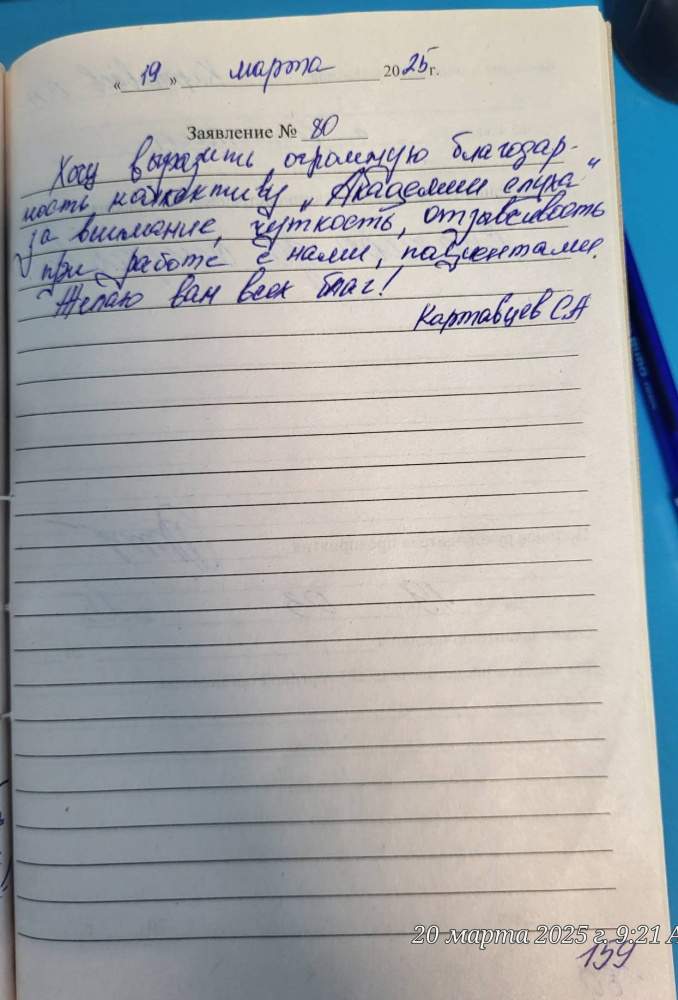 « 19 » марта 2025 г.
Заявление № 80
Хочу выразить огромную благодар-
ность коллективу „Академии слуха"
за внимание, чуткость, отзывчивость
при работе с нами, пациентами.
Желаю вам всех благ!
Картавцев С.А
20 марта 2025 г. 9:21
159